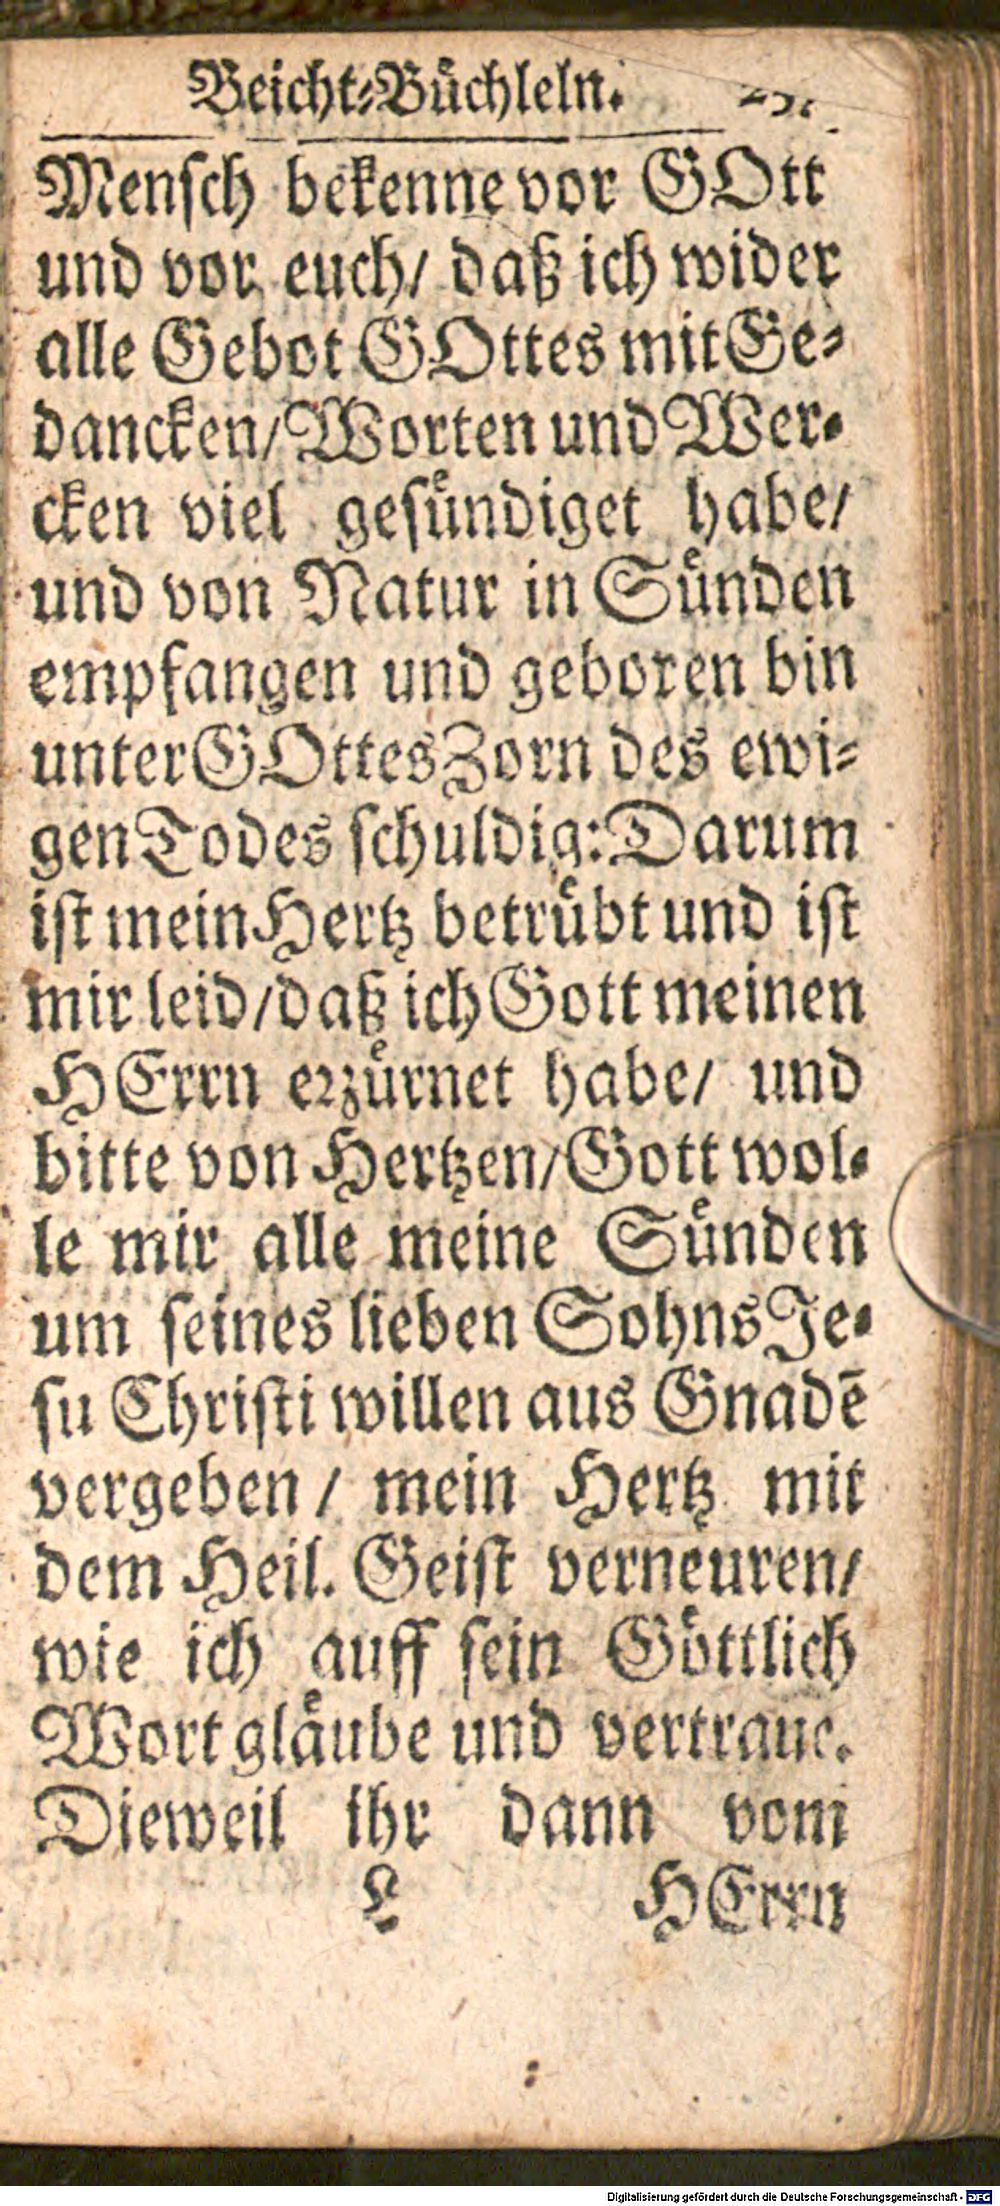 Beicht-Büchlein.
Mensch bekenne vor GOtt
und vor euch/ daß ich wider
alle Gebot GOttes mit Ge-
dancken/ Worten und Wer-
cken viel gesündiget habe/
und von Natur in Sünden
empfangen und geboren bin
unter GOttes Zorn des ewi-
gen Todes schuldig: Darum
ist mein Hertz betrübt und ist
mir leid/ daß ich Gott meinen
HErrn erzürnet habe/ und
bitte von Hertzen/ Gott wol-
le mir alle meine Sünden
um seines lieben Sohns Je-
su Christi willen aus Gnadē
vergeben / mein Hertz mit
dem Heil. Geist verneuren/
wie ich auff sein Göttlich
Wort gläube und vertraue.
Dieweil ihr dann vom
L HErrn
Digitalisierung gefördert durch die Deutsche Forschungsgemeinschaft - DFG